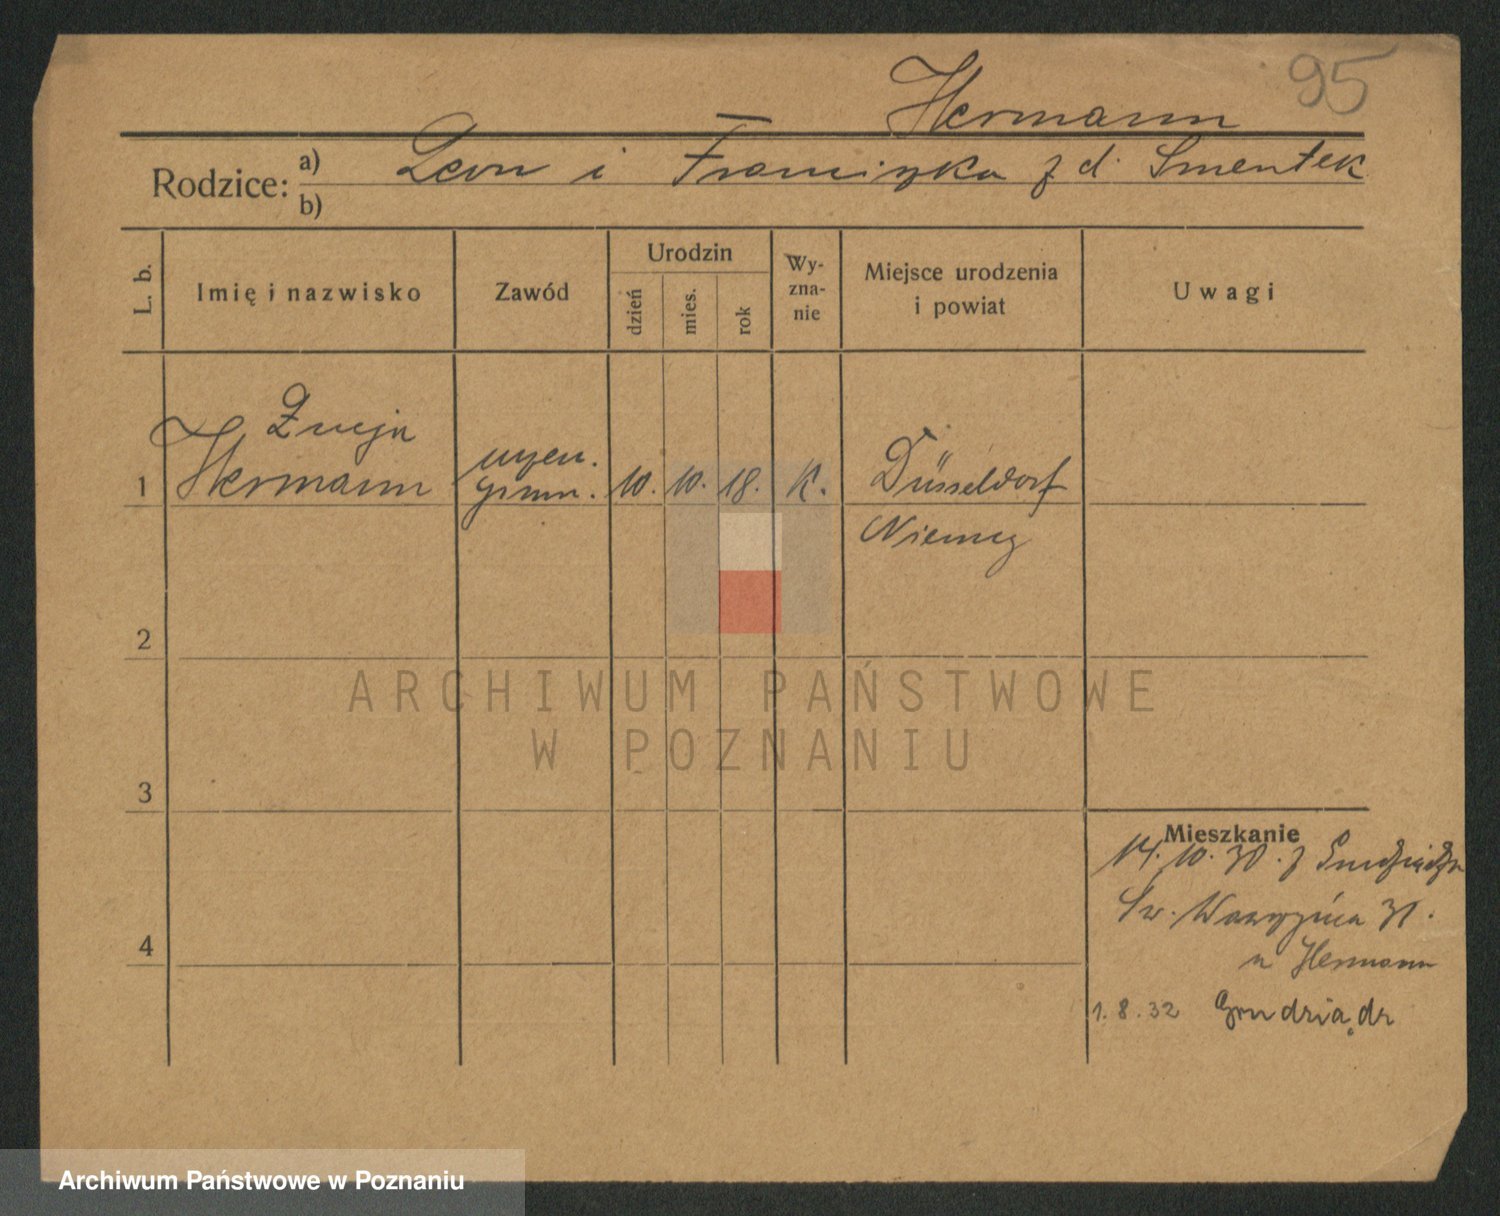 95
Hermann
Rodzice: a) Leon i Franciszka z d. Smentek
b)
L. b. Imię i nazwisko Zawód Urodzin dzień mies. rok Wyznanie Miejsce urodzenia i powiat Uwagi
Łucja
1 Hermann uczen. gimn. 10. 10. 18. K. Düsseldorf
Niemcy
2
3
4
Mieszkanie
14. 10. 30. z Grudziądza
Św. Wawrzyńca 31.
u Hermann
1. 8. 32 Grudziądz
ARCHIWUM PAŃSTWOWE
W POZNANIU
Archiwum Państwowe w Poznaniu